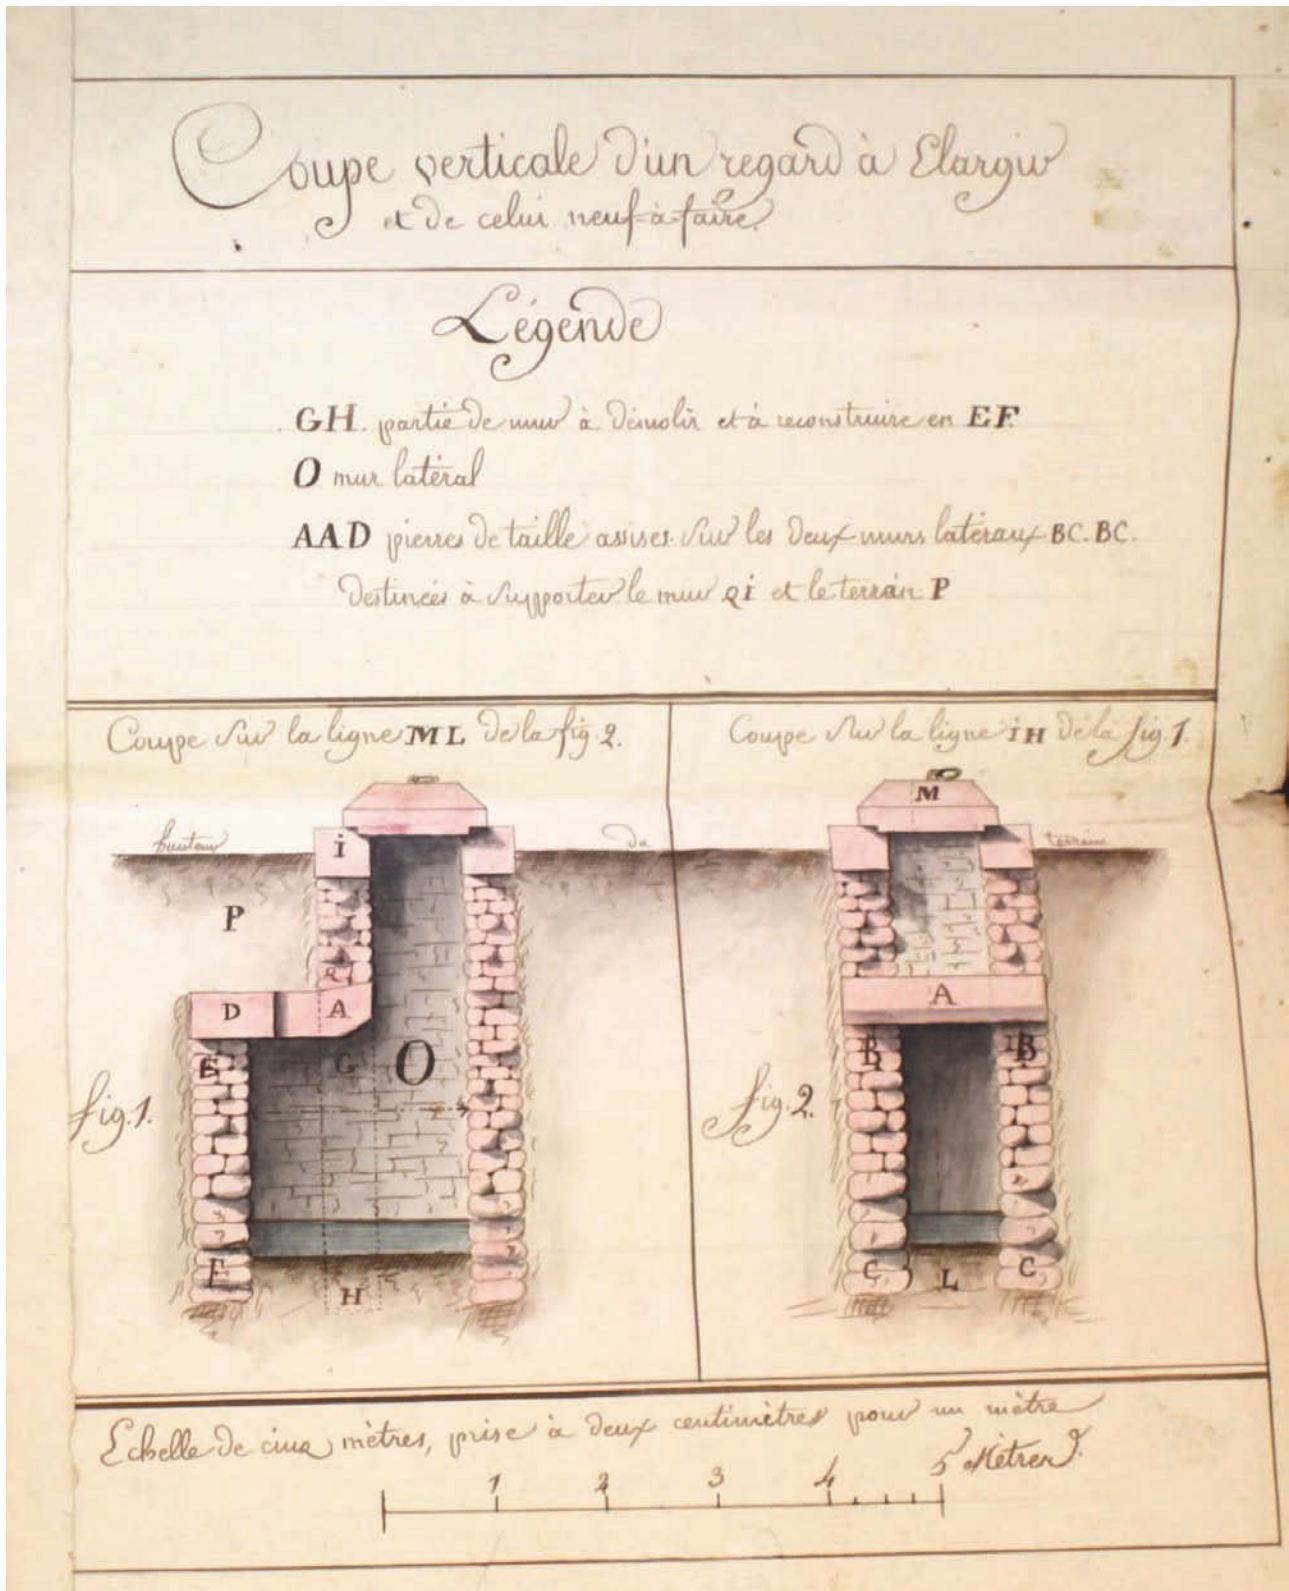 Coupe verticale d'un regard à Elargir
et de celui neuf à faire
Légende
GH. partie de mur à démolir et à reconstruire en EF.
O mur latéral
AAD pierres de taille assises sur les deux murs latéraux BC. BC.
destinées à supporter le mur Qi et le terrain P
Coupe sur la ligne ML de la fig. 2.
hauteur
du
i
P
Q
D
A
E
G
O
fig. 1.
F
H
Coupe sur la ligne iH de la fig. 1.
M
terrain
A
B
B
fig. 2.
C
L
C
Echelle de cinq mètres, prise à deux centimètres pour un mètre
1 2 3 4 5 Mètres.